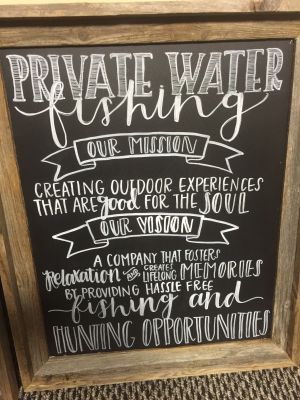 PRIVATE WATER
fishing
OUR MISSION
CREATING OUTDOOR EXPERIENCES
THAT ARE good FOR THE SOUL
OUR VISION
A COMPANY THAT FOSTERS
Relaxation AND CREATES LIFELONG MEMORIES
BY PROVIDING HASSLE FREE
fishing and
HUNTING OPPORTUNITIES